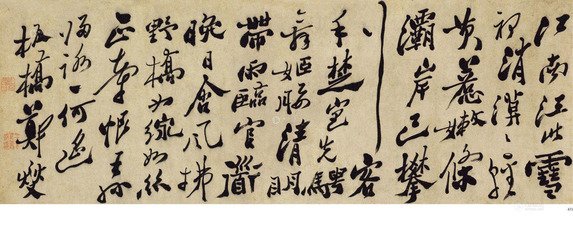 江南江北雪
初消漠〻輕
黃惹嫩條
灞岸已攀
行客
手楚宮先騁
舞姬腰清明
帶雨臨官道
晚日含風拂
野橋如線如絲
正牽恨王孫
歸路一何遙
板橋鄭燮